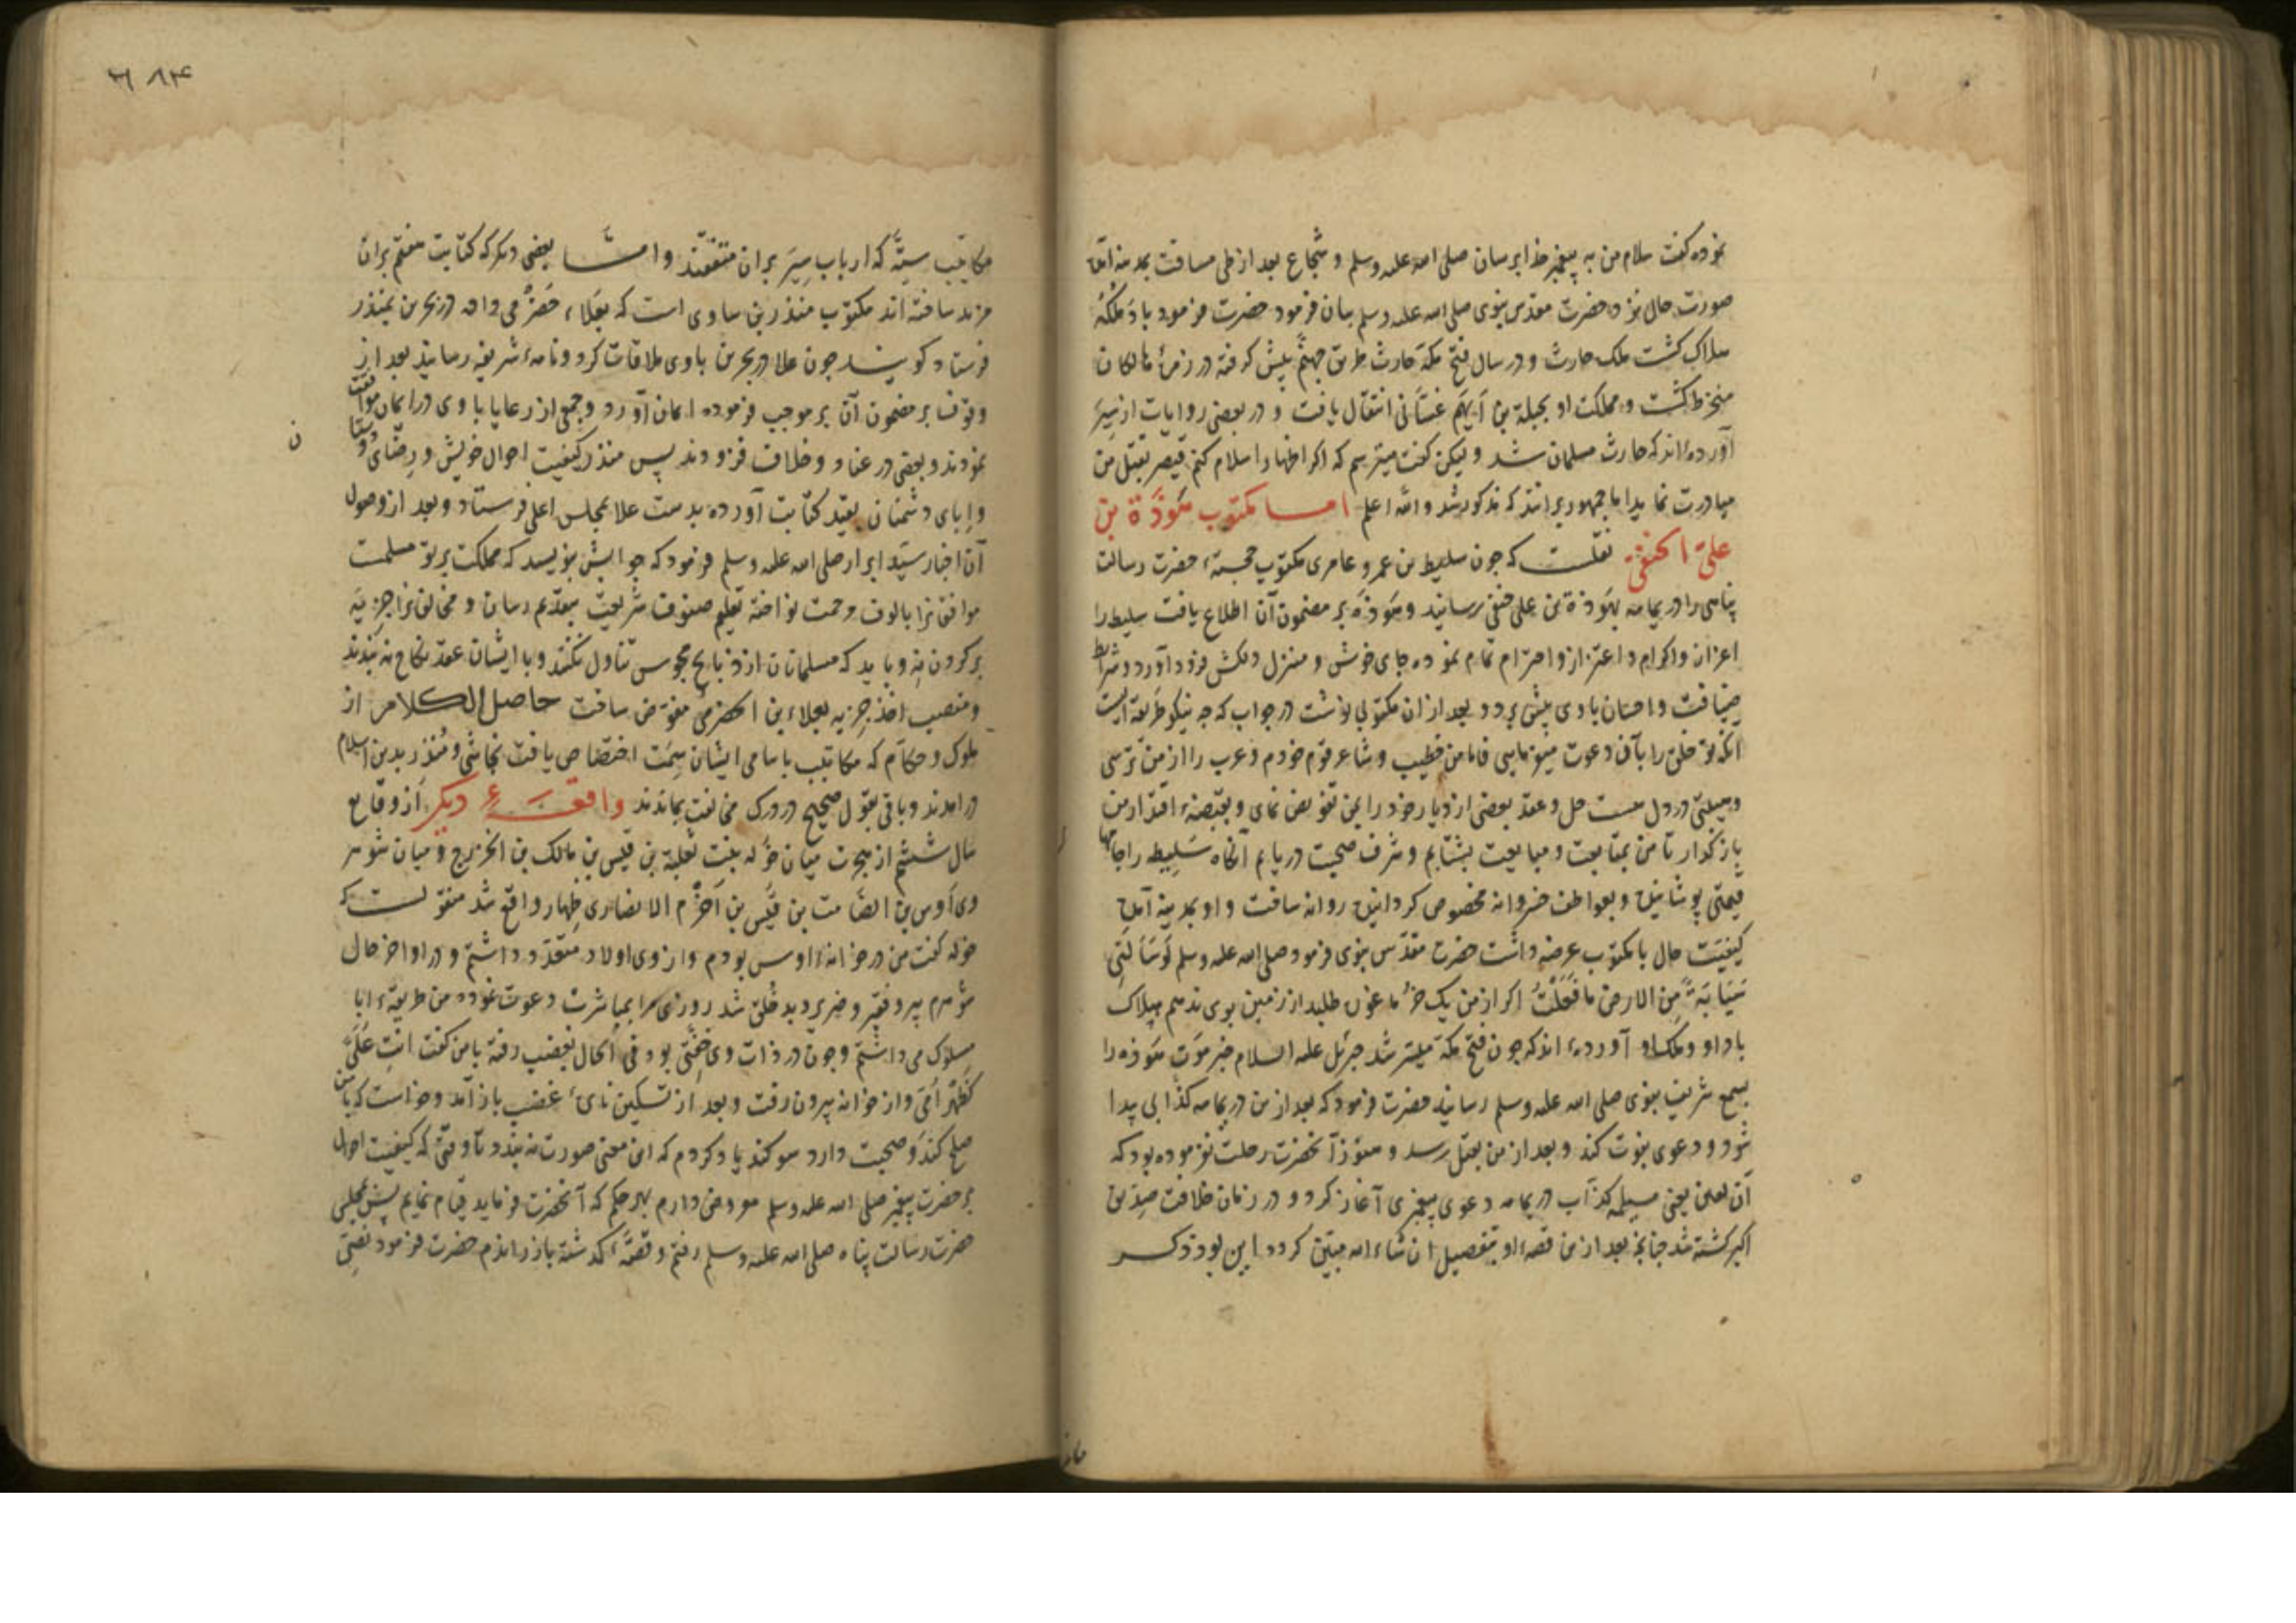 نموده کفت سلام من به پیغمبر خدا برسان صلی الله علیه وسلم و شجاع بعد از طی مسافت بمدینه آمد
صورت حال نزد حضرت مقدس نبوی صلی الله علیه وسلم بیان فرمود حضرت فرمود باد ملکهُ
هلاک کشت ملک حارث و در سال فتح مکّه حارث طریق جهنّم پیش کرفته در زمرهٔ هالکان
منخرط کشت و مملکت او بجبلة بن ایهم غسّانی انتقال یافت و در بعضی روایات از سِیَر
آورده‌اند که حارث مسلمان شد ولیکن کفت میترسم که اکر اظهار اسلام کنم قیصر بقتل من
مبادرت نماید اما جمهور برانند که مذکور شد والله اعلم امــا مکتوب هَوذَة بن
علیّ الحنفیّ نقلست که چون سلیط بن عمرو عامری مکتوب خجستهٔ حضرت رسالت
پناهی را در یمامه بهَوذة بن علی حنفی رسانید و هَوذَه بر مضمون آن اطلاع یافت سلیط را
اعزاز و اکرام و اعتزاز و احترام تمام نموده جای خوش و منزل دلکش فرود آورد و شرایط
ضیافت و احسان با وی پیش برد و بعد از ان مکتوبی نوشت در جواب که چه نیکو طریقه ایست
آنکه تو خلق را بآن دعوت مینمایی فاما من خطیب و شاعر قوم خودم و عرب را از من ترسی
و هیبتی در دل هست حل و عقد بعضی از دیار خود را بمن تفویض نمای و بقبضهٔ اقتدار من
باز کذار تا من بمتابعت و مبایعت بشتابم و شرف صحبت دریابم آنکاه سَلیط را جامها
قیمتی پوشانیده و بعواطف خسروانه مخصوص کردانیده روانه ساخت و او بمدینه آمده
کیفیّت حال با مکتوب عرضه داشت حضرت مقدّس نبوی فرمود صلی الله علیه وسلم لَو سَأَلَنی
سَیَابَةً مِن الارض ما فَعَلْتُ اکر از من یک خرما غوره طلبد از زمین بوی ندهم هلاک
باد او و ملک او آورده‌اند که چون فتح مکّه میسّر شد جبرئل علیه السلام خبر موت هَوذه را
بسمع شریف نبوی صلی الله علیه وسلم رسانید حضرت فرمود که بعد از من در یمامه کذّابی پیدا
شود و دعوی نبوّت کند و بعد از من بقتل رسد و هنوز آنحضرت رحلت نفرموده بود که
آن لعین یعنی مسیلمه کذّاب در یمامه دعوی پیغمبری آغاز کرد و در زمان خلافت صدّیق
اکبر کشته شد چنانچه بعد از من قصهٔ او بتفصیل ان شاء الله مبیّن کردد این بود ذکر
۳۸۴
مکاتیب ستّه که ارباب سِیَر بران متفقند وامّــا بعضی دیکر که کتابت هفتم بران
مزید ساخته اند مکتوب منذر بن ساوی است که بعَلاء حَضرَمی داد در بحرین بمنذر
فرستاد کویند چون علا در بحرین با وی ملاقات کرد و نامهٔ شریفه رسانید بعد از
وقوف بر مضمون آن بر موجب فرموده ایمان آورد و جمعی از رعایا با وی در ایمان موافقت
نمودند و بعضی در عناد و خلاف فزودند پس منذر کیفیت احوال خویش و رضای دوستان
وابای دشمنان بقید کتابت آورده بدست علا بمجلس اعلی فرستاد و بعد از وصول
آن اخبار سیّد ابرار صلی الله علیه وسلم فرمود که جوابش بنویسد که مملکت بر تو مسلمست
موافقانرا بالوف رحمت نواخته تعلیم صنوف شریعت بتقدیم رسان و مخالفانرا جزیه
بر کردن نِه و باید که مسلمانان از ذبایح مجوس تناول نکنند و با ایشان عقد نکاح نه بندند
و منصب اخذ جزیه بعلاء بن الحضرمی مفوّض ساخت حاصل الکلام از
ملوک و حکّام که مکاتیب باسامی ایشان سِمَت اختصاص یافت نجاشی و مُنذر بدین اسلام
در آمدند و باقی بقول صحیح در درک مخالفت بماندند واقعـــهٔ دیکر از وقایع
سال ششم از هجرت میان خَوله بنت ثعلبة بن قیس بن مالک بن الخزرج و میان شوهر
وی اوس بن الصامت بن قیس بن اَخرَم الانصاری ظِهار واقع شد منقولست که
خوله کفت من در خانهٔ اوس بودم و از وی اولاد متعدّد داشتم و در اواخر حال
شوهرم پیر و فقیر و ضریر و بد خُلق شد روزی مرا بمباشرت دعوت نمود من طریقهٔ ابا
مسلوک می داشتم و چون در ذات وی خِفّتی بود فی الحال بغضب رفته با من کفت انتِ عَلَیَّ
کَظَهرِ اُمّی و از خانه بیرون رفت و بعد از تسکین نایرهٔ غضب باز آمد و خواست که با من
صلح کند و صحبت دارد سوکند یاد کردم که این معنی صورت نه بندد تا وقتی که کیفیت احوال
بر حضرت پیغمبر صلی الله علیه وسلم معروض دارم بهر حکم که آنحضرت فرماید قیام نمایم پس بمجلس
حضرت رسالت پناه صلی الله علیه وسلم رفتم و قصّهٔ کذشته باز راندم حضرت فرمود